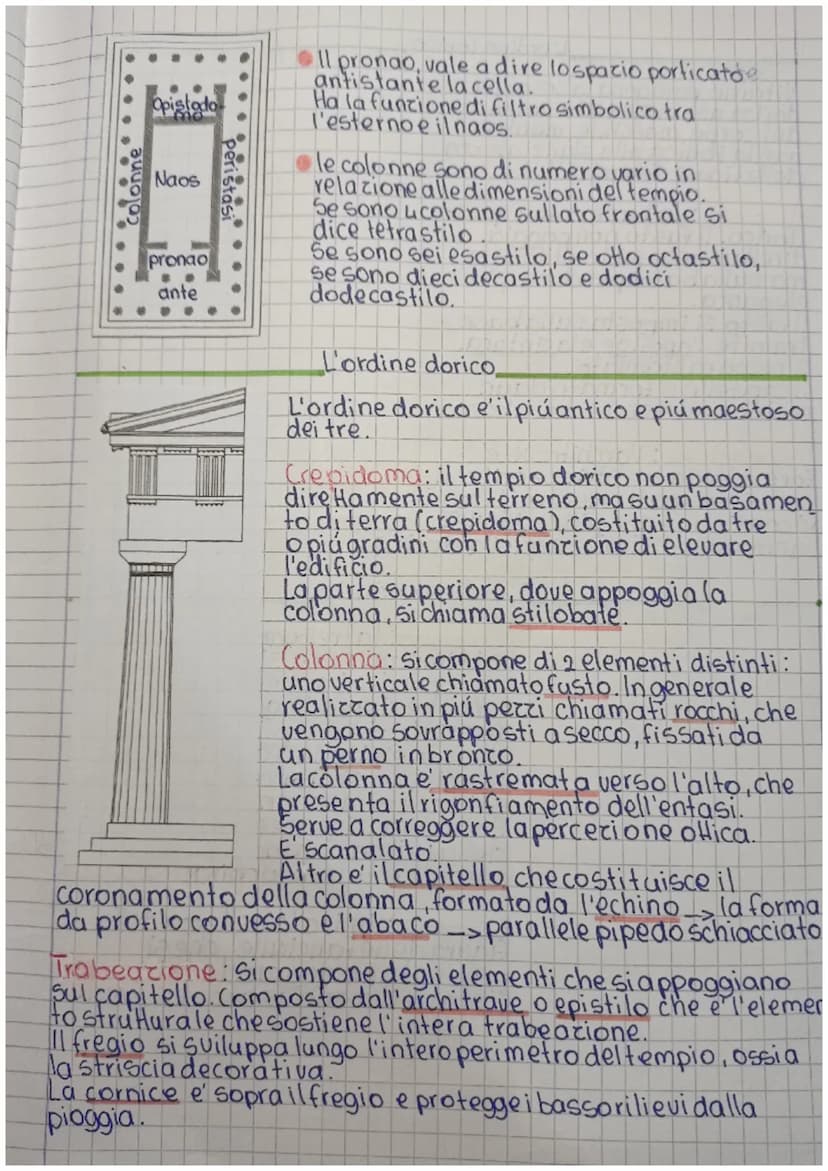 Opistodo-
mo
colonne
Naos
peristasi
pronao
ante
Il pronao, vale a dire lo spazio porticato e
antistante la cella.
Ha la funzione di filtro simbolico tra
l'esterno e il naos.
le colonne sono di numero vario in
relazione alle dimensioni del tempio.
Se sono 4 colonne sul lato frontale si
dice tetrastilo.
Se sono sei esastilo, se otto octastilo,
se sono dieci decastilo e dodici
dodecastilo.
L'ordine dorico
L'ordine dorico e' il piú antico e piú maestoso
dei tre.
Crepidoma: il tempio dorico non poggia
direttamente sul terreno, ma su un basamen
to di terra (crepidoma), costituito da tre
o piú gradini con la funzione di elevare
l'edificio.
La parte superiore, dove appoggia la
colonna, si chiama stilobate.
Colonna: si compone di 2 elementi distinti:
uno verticale chiamato fusto. In generale
realizzato in piú pezzi chiamati rocchi, che
vengono sovrapposti a secco, fissati da
un perno in bronzo.
La colonna e' rastremata verso l'alto, che
presenta il rigonfiamento dell'entasi.
Serve a correggere la percezione ottica.
E' scanalato.
Altro e' il capitello che costituisce il
coronamento della colonna, formato da l'echino -> la forma
da profilo convesso e l'abaco -> parallelepipedo schiacciato
Trabeazione: si compone degli elementi che si appoggiano
sul capitello. Composto dall'architrave o epistilo che e' l'elemen
to strutturale che sostiene l'intera trabeazione.
Il fregio si sviluppa lungo l'intero perimetro del tempio, ossia
la striscia decorativa.
La cornice e' sopra il fregio e protegge i bassorilievi dalla
pioggia.